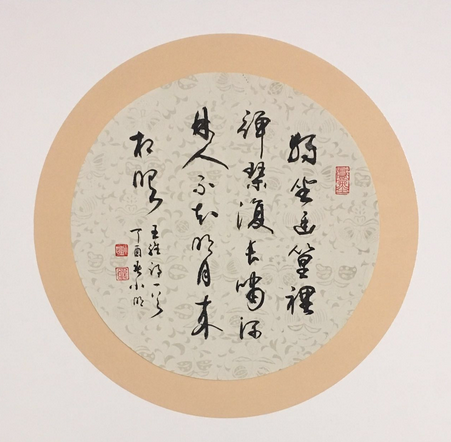 獨坐幽篁裡
彈琴復長嘯深
林人不知明月来
相照
王維詩一首
丁酉春小明